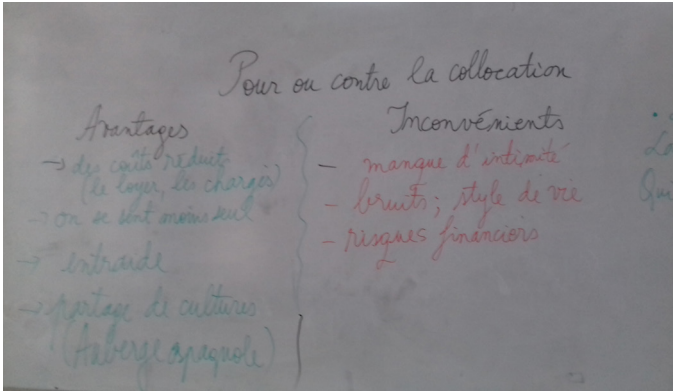 Pour ou contre la collocation
Avantages
→ des coûts réduit
(le loyer, les charges)
→ on se sent moins seul
→ entraide
→ partage de cultures
(Auberge espagnole)
Inconvénients
- manque d'intimité
- bruits; style de vie
- risques financiers
Qui